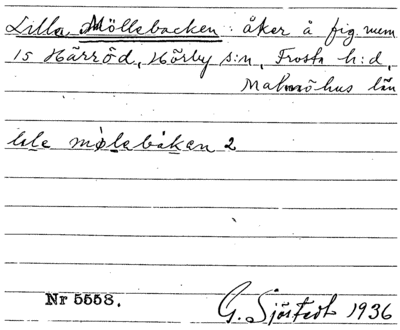 Lilla Möllebacken: åker å fig. num
15 Härröd, Hörby s:n, Frosta h:d,
Malmöhus län
lile mølebakan 2
Nr 5558.
G. Sjöstedt 1936